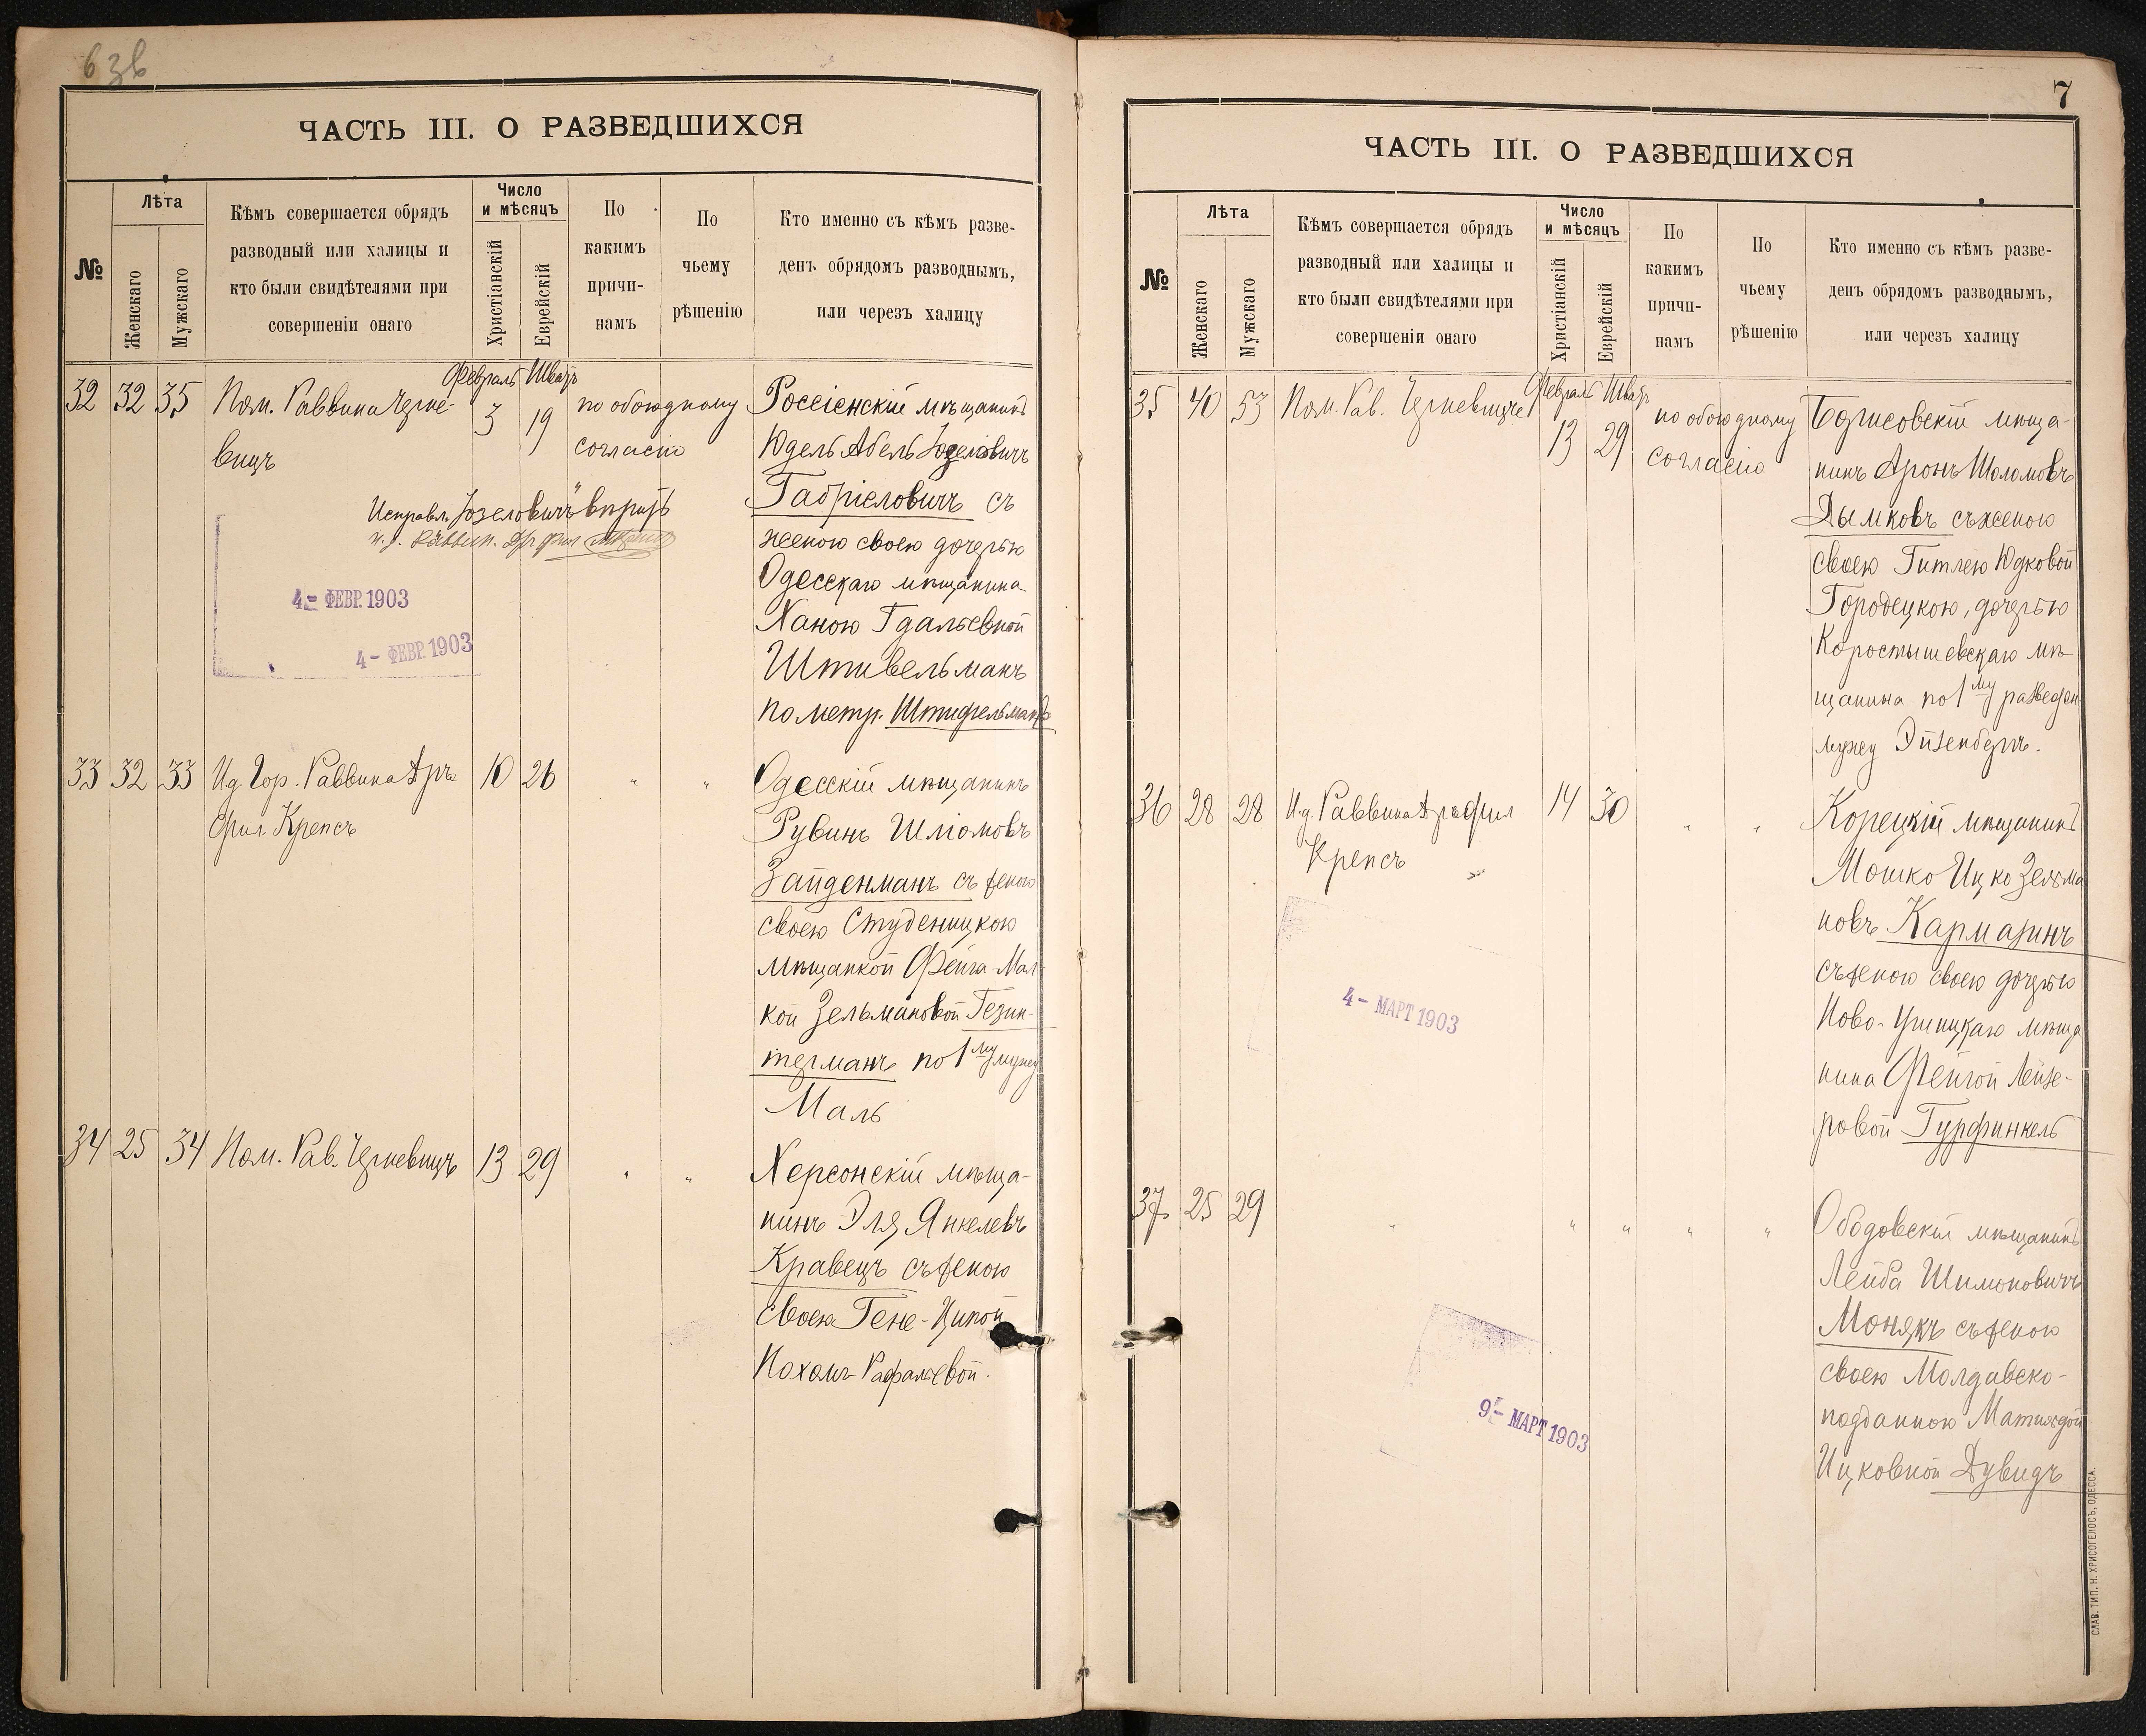 6 зв
ЧАСТЬ III. О РАЗВЕДШИХСЯ
№
Лѣта
Женскаго
Мужскаго
Кѣмъ совершается обрядъ
разводный или халицы и
кто были свидѣтелями при
совершеніи онаго
Число
и мѣсяцъ
Христіанскій
Еврейскій
По
какимъ
причи-
намъ
По
чьему
рѣшенію
Кто именно съ кѣмъ разве-
денъ обрядомъ разводнымъ,
или черезъ халицу
Февраль Шватъ
32 32 35 Пом. Раввина Черне-
вицъ
3 19
по обоюдному
согласію
Россіенскій мѣщанинъ
Юдель Абель Іозеловичъ
Габріеловичъ съ
женою своею дочерью
Одесскаго мѣщанина
Ханою Гдальевной
Штивельманъ
по метр. Штифельманъ
Исправл. "Іозеловичъ" вѣрить
4 - ФЕВР. 1903
4 - ФЕВР. 1903
33 32 33 И.д. Гор. Раввина Дръ
Фил Крепсъ
10 26 " "
Одесскій мѣщанинъ
Рувинъ Шліомовъ
Зайденманъ съ женою
своею Студеницкою
мѣщанкой Фейга-Мал
кой Зельмановой Гезин-
терманъ по 1му мужу
Маль
34 25 34 Пом. Рав. Черневицъ 13 29 " "
Херсонскій мѣща-
нинъ Эля Янкелевъ
Кравецъ съ женою
своею Гене-Ципой
Нохомъ-Рафальевой.
7
ЧАСТЬ III. О РАЗВЕДШИХСЯ
№
Лѣта
Женскаго
Мужскаго
Кѣмъ совершается обрядъ
разводный или халицы и
кто были свидѣтелями при
совершеніи онаго
Число
и мѣсяцъ
Христіанскій
Еврейскій
По
какимъ
причи-
намъ
По
чьему
рѣшенію
Кто именно съ кѣмъ разве-
денъ обрядомъ разводнымъ,
или черезъ халицу
Февраль Шватъ
35 40 53 Пом. Рав. Черневицъ
13 29
по обоюдному
согласію
Борисовскій мѣща-
нинъ Аронъ Шоломовъ
Дымковъ съ женою
своею Гитлею Юдковой
Городецкою, дочерью
Коростышевскаго мѣ
щанина по 1му разведен
мужу Эйзенбергъ.
36 28 28 И.д. Раввина Дръ Фил
Крепсъ
14 30 " "
Корецкій мѣщанинъ
Мошко Ицко Зельма
новъ Кармазинъ
съ женою своею дочерью
Ново-Ушицкаго мѣща
нина Фейгой Лейзе-
ровой Гурфинкель
4 - МАРТ 1903
37 25 29 " " " " "
Ободовскій мѣщанинъ
Лейба Шимоновичъ
Монякъ съ женою
своею Молдавско-
подданною Матильдой
Ицковной Дувидъ
9 - МАРТ 1903
СЛАВ. ТИП. Н. ХРИСОГЕЛОСЪ, ОДЕССА.